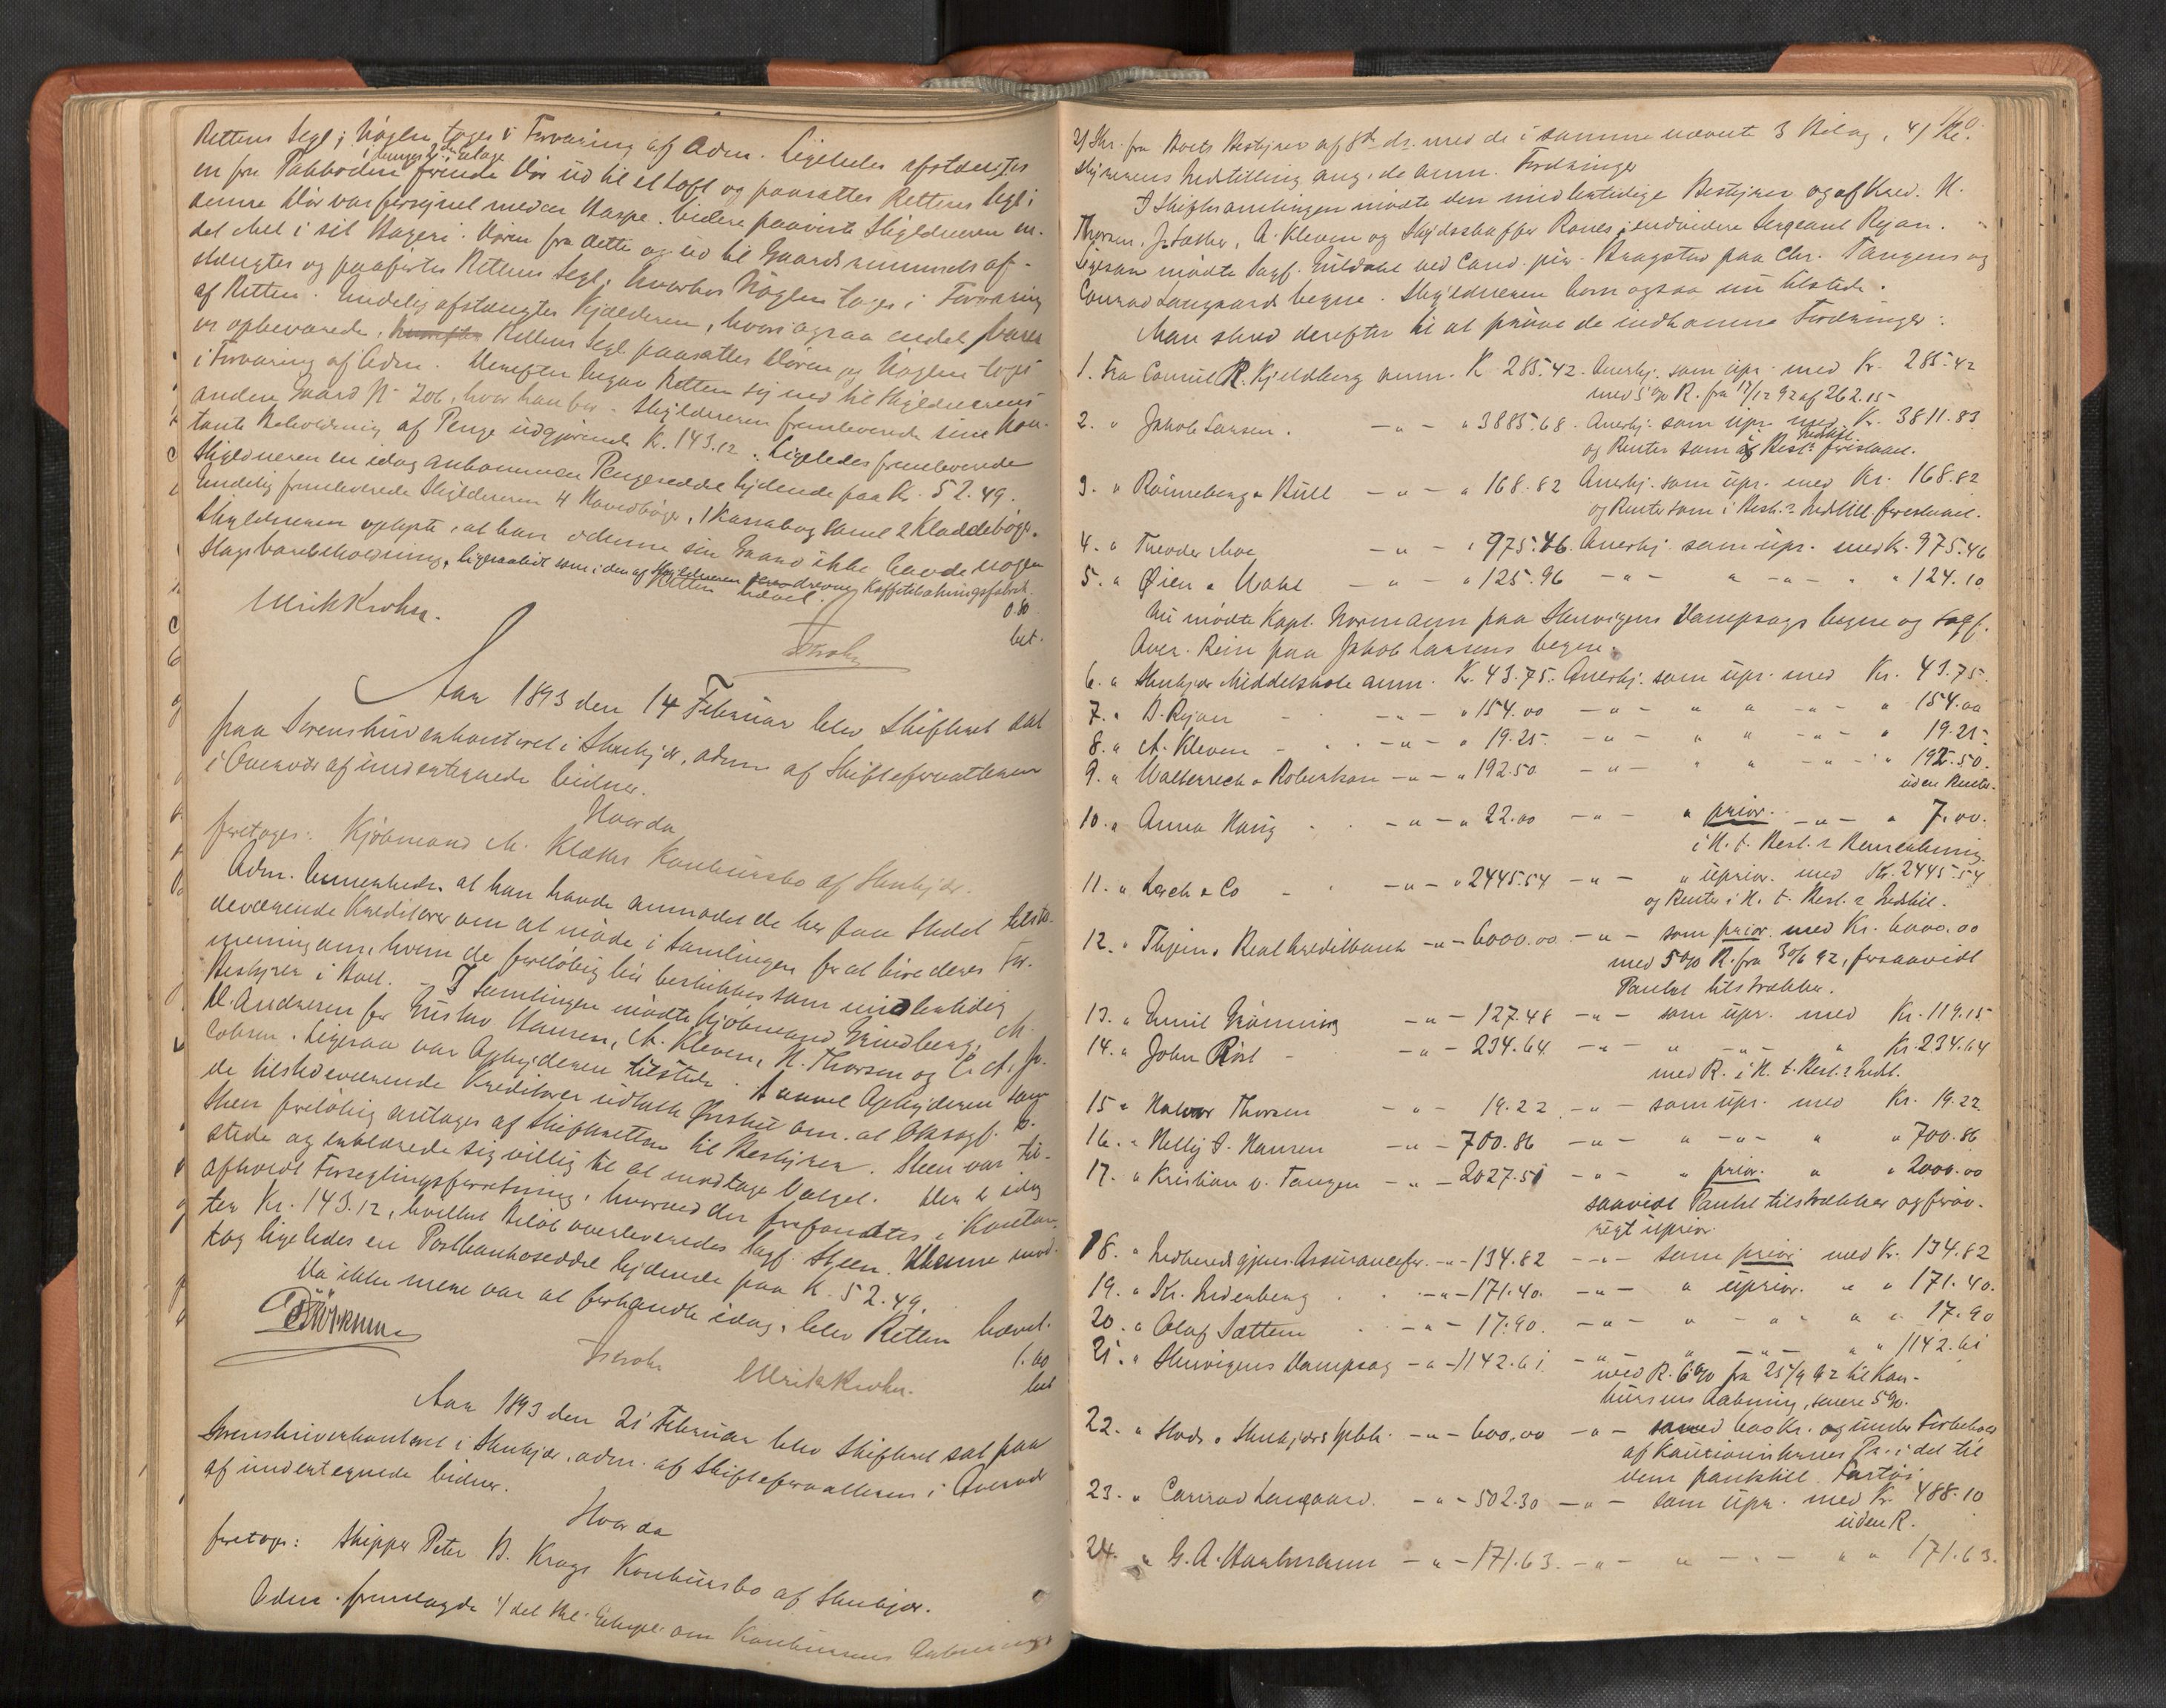 Rettens Segl; Nøglen toges i Forvaring af Adm. Ligeledes afstængtes
en fra Pakboden i dennes 2den Etage førende Dør ud til et Loft og paasattes Rettens Segl;
denne Dør var forsynet med en Haspe. Videre paaviste Skyldneren en-
del Mel i sit Bageri. Døren fra dette og ud til Gaardsrummet af-
stængtes og paaførtes Rettens Segl, hvorhos Nøglen toges i Forvaring
af Retten. Endelig afstængtes Kjælderen, hvori ogsaa endel Varer
er opbevarede. Rettens Segl paasattes Døren og Nøglen toges
i Forvaring af Adm. Derefter begav Retten sig ned til Skyldnerens
anden Gaard No 206, hvor han bor. Skyldneren fremleverede sin kon-
tante Beholdning af Penge udgjørende K. 143.12. Ligeledes fremleverede
Skyldneren en idag ankommen Pengeseddel lydende paa Kr. 52.49.
Endelig fremleverede Skyldneren 4 Hovedbøger, 1 Kassabog samt 2 Kladdebøger.
Skyldneren oplyste, at han i denne sin Gaard ikke havde nogen
Slags Varebeholdning, ligesaalidt som i den af Skyldneren drevne Kaffetilsætningsfabrik.
Retten hævet.
Ulrik Krohn.
0.80
bet.
Krohn
Aar 1893 den 14 Februar blev Skifteret sat
paa Sorenskriverkontoret i Stenkjær, adm. af Skifteforvalteren
i Overvær af undertegnede Vidner.
Hvorda
foretoges: Kjøbmand M. Klæths Konkursbo af Stenkjær.
Adm. bemærkede, at han havde anmodet de her paa Stedet tilste-
deværende Kreditorer om at møde i Samlingen for at høre deres For-
mening om, hvem de foreløbig bør beskikkes som midlertidig
Bestyrer i Boet. – I Samlingen mødte Kjøbmand Grindberg, M.
H. Andresen for Gustav Hansen, A. Kleven, H. Thorsen og E. A. Ja-
cobsen. Ligesaa var Opbyderen tilstede. Saavel Opbyderen som
de tilstedeværende Kreditorer udtalte Ønsket om, at Oksagf. O.
Steen foreløbig antages af Skifteretten til Bestyrer. Steen var til-
stede og erklærede sig villig til at modtage Valget. Der er idag
afholdt Forseglingsforretning, hvorved der forefandtes i Kontan-
ter Kr. 143.12, hvilket Beløb overleveredes Sagf. Steen. Denne mod-
tog ligeledes en Postbankoseddel lydende paa K. 52.49.
Da ikke mere var at forhandle idag, blev Retten hævet.
1.00
bet
Krohn
Ulrik Krohn.
Aar 1893 den 21 Februar blev Skifteret sat paa
Sorenskriverkontoret i Stenkjær, adm. af Skifteforvalteren i Overvær
af undertegnede Vidner.
Hvorda
foretoges: Skipper Peter B. Krogs Konkursbo af Stenkjær.
Adm. fremlagde 1/ det Kbl. Exempl. om Konkursens Aabning,
2/ Skr. fra Boets Bestyrer af 8de ds. med de i samme nævnte 3 Bilag,
Skyldnerens Indstilling ang. de anm. Fordringer
I Skiftesamlingen mødte den midlertidige Bestyrer og af Kred. H.
Thorsen, J. Sather, A. Kleven og Skydsskaffer Rones; endvidere Sergeant Rejan.
Ligesaa mødte Sagf. Guldahl ved Cand. jur. Bragstad paa Chr. Tangens og
Conrad Langaards Vegne. Skyldneren kom ogsaa nu tilstede.
Man skred derefter til at prøve de indkomne Fordringer:
1. Fra Consul R. Kjeldberg anm. K 285.42. Anerkj. som upr. med Kr. 285.42
med 5% R. fra 17/12 92 af 262.15
2. " Jakob Larsen. – " – " 3885.68. Anerkj. som upr. med Kr. 3811.83
og Renter som af Best. Indstil. foreslaaet.
3. " Rönneberg & Büll – " – " 168.82 Anerkj. som upr. med Kr. 168.82
og Renter som i Best.s Indstill. foreslaaet.
4. " Theodor Moe – " – " 975.46. Anerkj. som upr. med K. 975.46
5. " Øien & Wahl – " – " 125.96 – " – " – " – " " 124.10
Nu mødte Kapt. Normann paa Stenvigens Dampsags Vegne og Sagf.
Aver. Rein paa Jakob Larsens Vegne.
6. " Stenkjær Middelskole anm. Kr. 43.75. Anerkj. som upr. med Kr. 43.75.
7. " B. Rejan – – " – " 154.00 – " – " " – " – " 154.00
8. " A. Kleven – – " – " 19.25. – " – " " – " – 19.25
9. " Walterreck & Robertson – " – " 192.50 – " – " " – " – " 192.50.
uden Renter.
10. " Anna Haug – " – " 22.00 – " – " prior. – " – " 7.00.
i H. t. Best.s Bemerkning.
11. " Lerch & Co – – " – " 2445.54 – " – " uprior. med Kr. 2445.54
og Renter i H. t. Best.s Indstil.
12. " Thjems Realkreditbank – " – 6000.00 – " – som prior. med Kr. 6000.00
med 5% R. fra 30/6 92, forsaavidt
Pantet tilstrækker.
13. " Emil Grönning – " – 127.48 – " – som upr. med Kr. 119.15
14. " John Röst – – " – 234.64 – " – " – " – " Kr. 234.64
med R. i H. t. Best.s Indst.
15 " Halvor Thorsen – " – 19.22 – " – som upr. med Kr. 19.22
16. " Nelly S. Hansen – " – 700.86 – " – " – " – " " 700.86
17. " Kristian v. Tangen – " – 2027.51 – " – " prior. " " 2000.00
saavidt Pantet tilstrækker og forøv-
rigt uprior.
18. " Indherreds gjens. Assurancefor. – " – 134.82 – " – som prior. med Kr. 134.82
19. " Kr. Lidenberg – " – 171.40. – " – " uprior. " " 171.40.
20. " Olaf Sættem – " – 17.90. – " – " – " " " 17.90
21. " Stenvigens Dampsag – " – 1142.61 – " – " – " – " " 1142.61
med R. 6% fra 25/9 92 til Kon-
kursens Aabning, senere 5%.
22. " Stods & Stenkjærs Spbk. – " – 600.00 – " – med 600 Kr. og under Forbehold
af Kautionisternes Pr. i det til
dem pantstill. Fartøi
23. " Conrad Langaard. – " – 502.30 – " – som upr. med Kr. 488.10
uden R.
24. " G. A. Haalmann – " – 171.63. – " – " – " – " " 171.63.